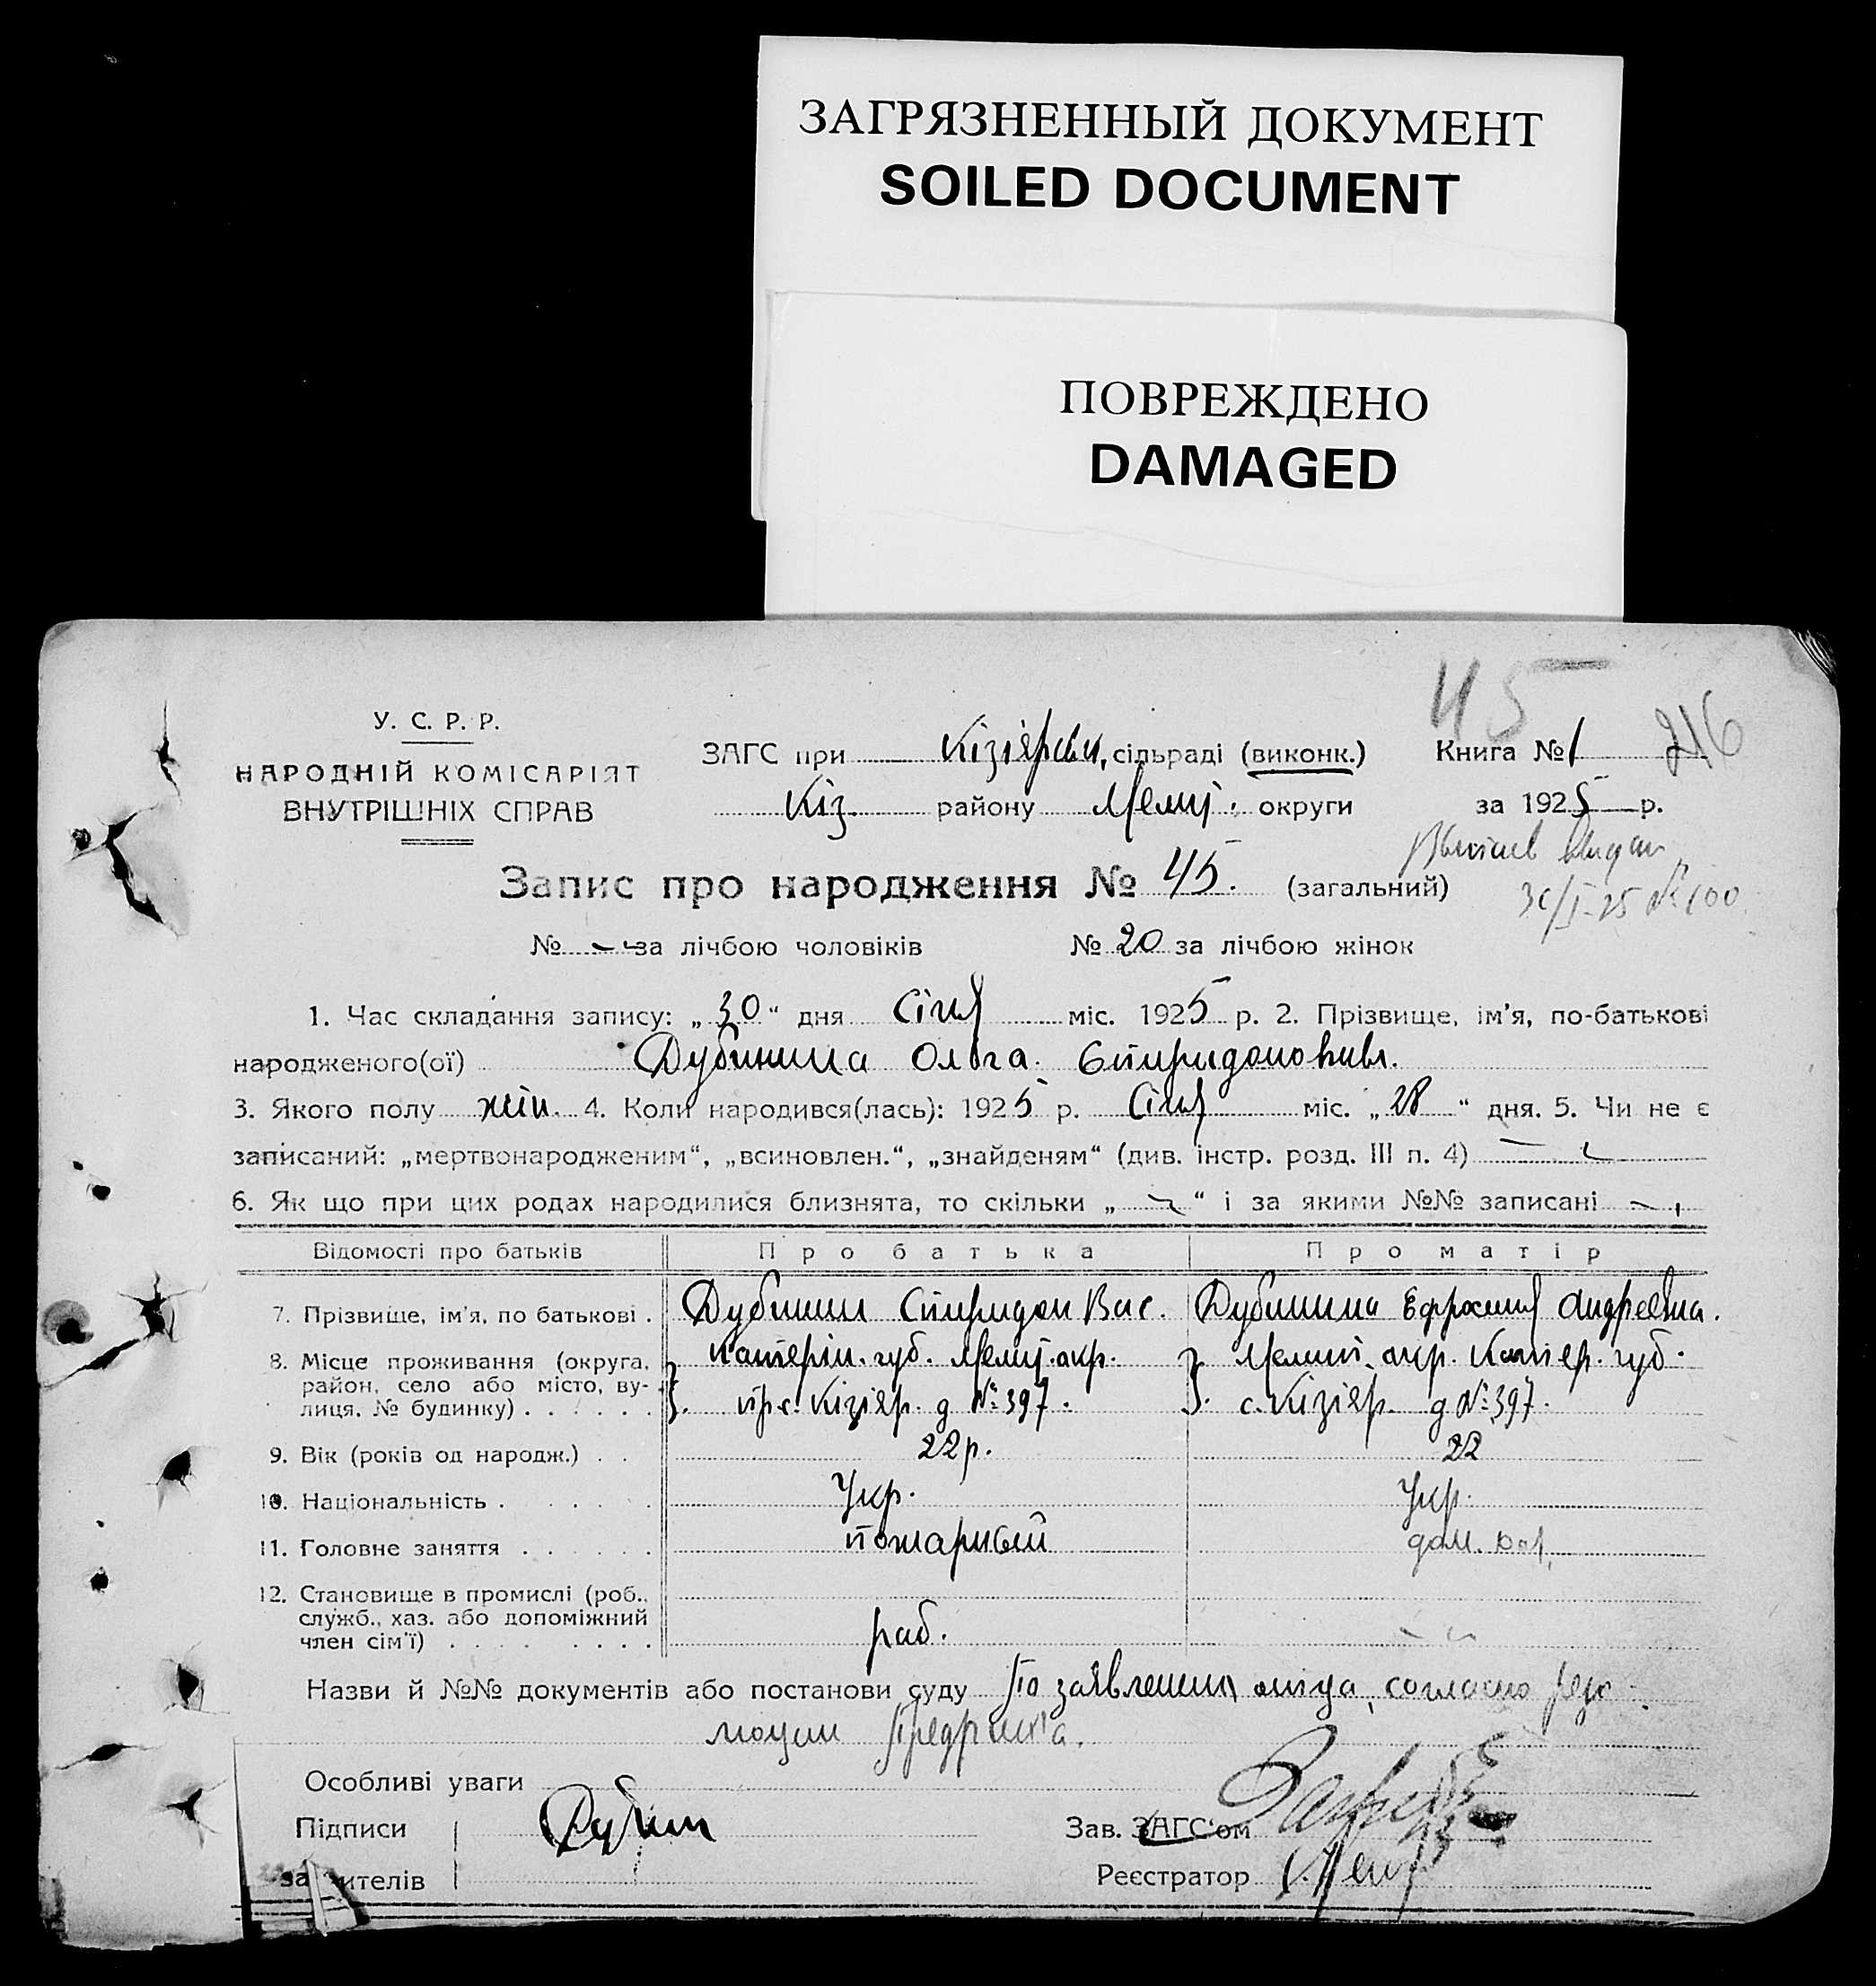 ЗАГРЯЗНЕННЫЙ ДОКУМЕНТ
SOILED DOCUMENT
ПОВРЕЖДЕНО
DAMAGED
45
У. С. Р. Р.
НАРОДНІЙ КОМІСАРІЯТ
ВНУТРІШНІХ СПРАВ
ЗАГС при Кізіярськ. сільраді (виконк.)
Кіз. району Меліт. округи
Книга № 1 216
за 1925 р.
Запис про народження № 45. (загальний)
30/I-25 № 100
№ — за лічбою чоловіків № 20 за лічбою жінок
1. Час складання запису: „30“ дня Січня міс. 1925 р. 2. Прізвище, ім'я, по-батькові
народженого(ої) Дубинина Ольга Спиридоновна.
3. Якого полу жін. 4. Коли народився(лась): 1925 р. Січня міс. „28“ дня. 5. Чи не є
записаний: „мертвонародженим“, „всиновлен.“, „знайденям“ (див. інстр. розд. III п. 4) —
6. Як що при цих родах народилися близнята, то скільки „—“ і за якими №№ записані —
Відомості про батьків Про батька Про матір
7. Прізвище, ім'я, по батькові . Дубинин Спиридон Вас. Дубинина Ефросиния Андреевна.
8. Місце проживання (округа, район, село або місто, вулиця, № будинку) . . . . . .
Катерін. губ. Меліт. окр.
с. Кізіяр. д № 397.
Меліт. окр. Катер. губ.
с. Кізіяр. д № 397.
9. Вік (років од народж.) . . 22 р. 22
10. Національність . . . . . . Укр. Укр.
11. Головне заняття . . . . . . пожарный дом. хоз.
12. Становище в промислі (роб., служб., хаз. або допоміжний член сім'ї) . . . . . . . . раб. —
Назви й №№ документів або постанови суду По заявлению отца, согласно резо
люции Предрика.
Особливі уваги
Підписи Дубин
заявителів
Зав. ЗАГС'ом
Реєстратор